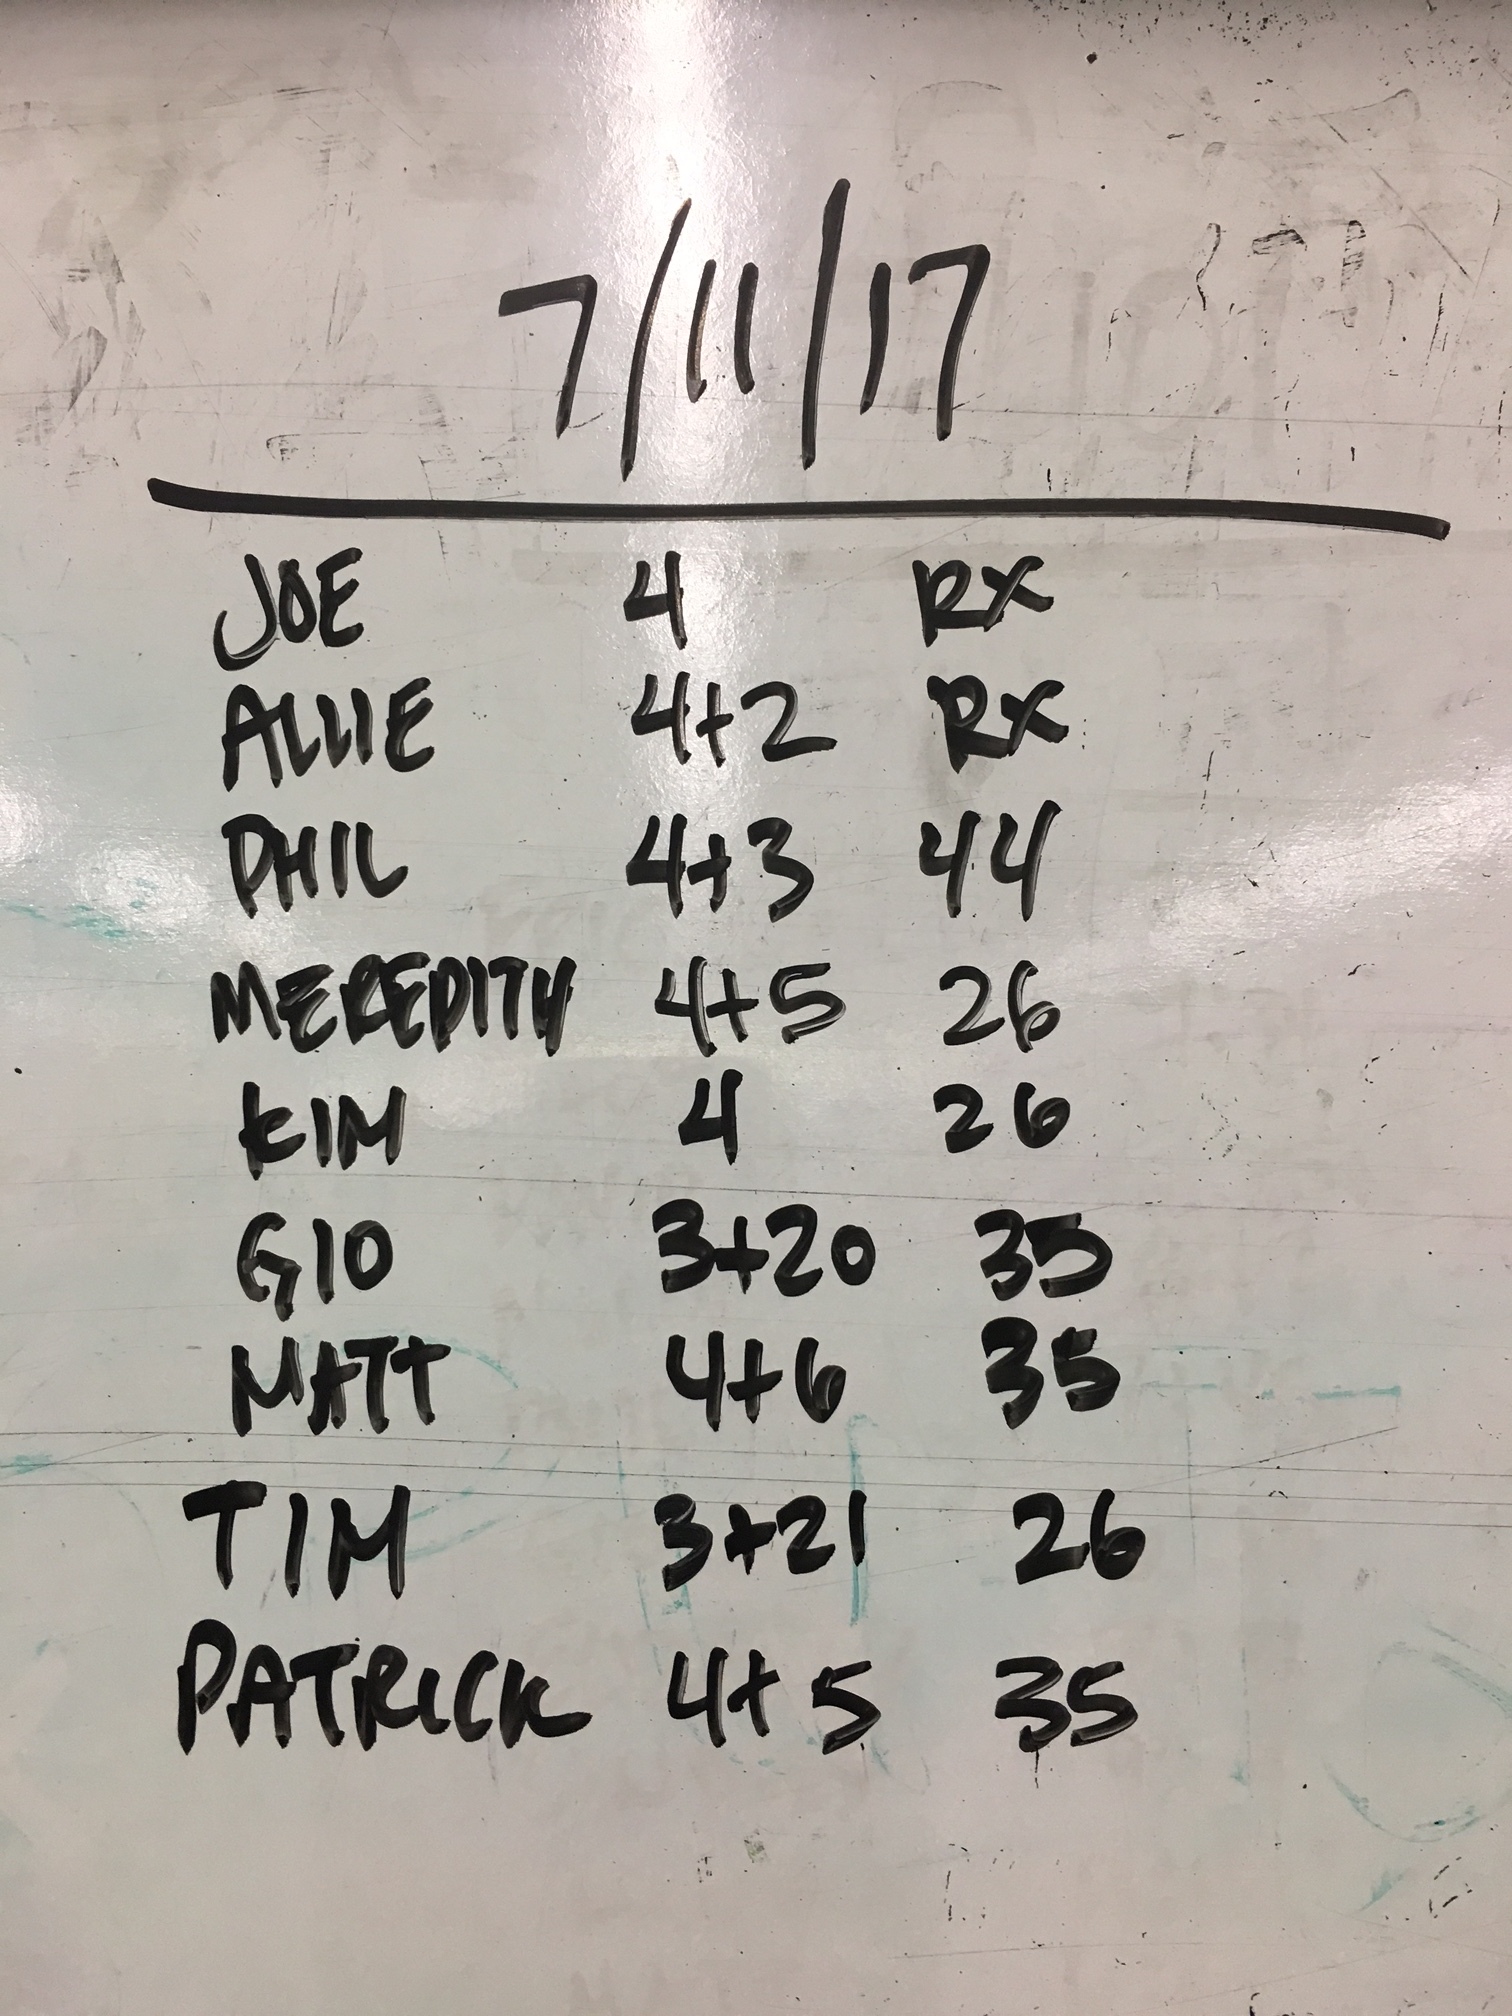 7/11/17
JOE 4 RX
ALLIE 4+2 RX
PHIL 4+3 44
MEREDITH 4+5 26
KIM 4 26
GIO 3+20 35
MATT 4+6 35
TIM 3+21 26
PATRICK 4+5 35